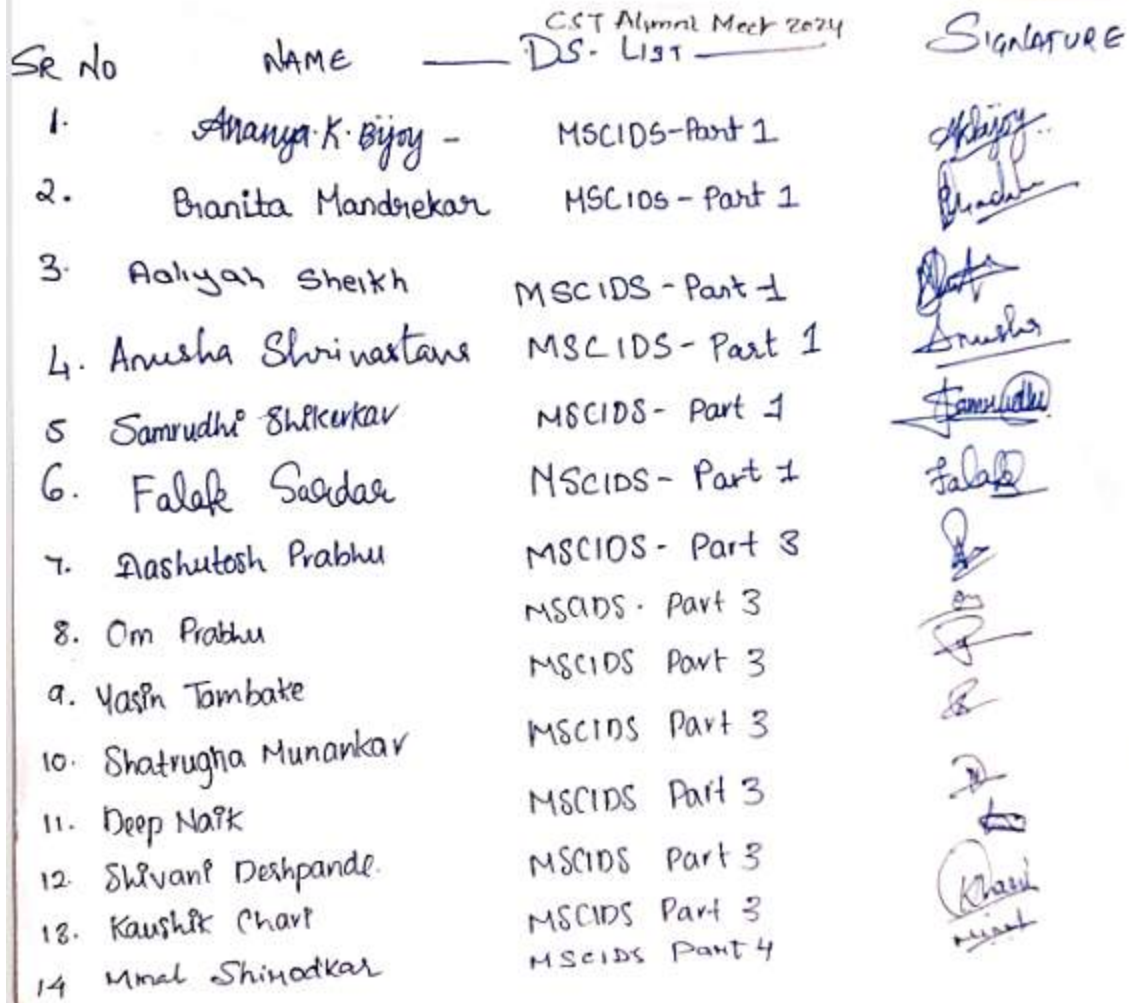 CST Alumni Meet 2024
SR NO NAME DS- LIST SIGNATURE
1. Ananya.K.Bijoy - MSCIDS-Part 1 AKBijoy..
2. Pranita Mandrekar MSCIDS - Part 1
3. Aaliyah Sheikh MSCIDS - Part-1
4. Anusha Shrivastava MSCIDS - Part 1 Anusha
5 Samrudhi Shikerkar MSCIDS - Part 1 Samrudhi
6. Falak Sardar MSCIDS - Part 1 Falak
7. Aashutosh Prabhu MSCIDS - Part 3
8. Om Prabhu MSCIDS . Part 3 Om
9. Yasin Tambate MSCIDS Part 3
10. Shatrugha Munankar MSCIDS Part 3
11. Deep Naik MSCIDS Part 3
12. Shivani Deshpande. MSCIDS Part 3
13. Kaushik Chari MSCIDS Part 3
14 Shirodkar MSCIDS Part 4